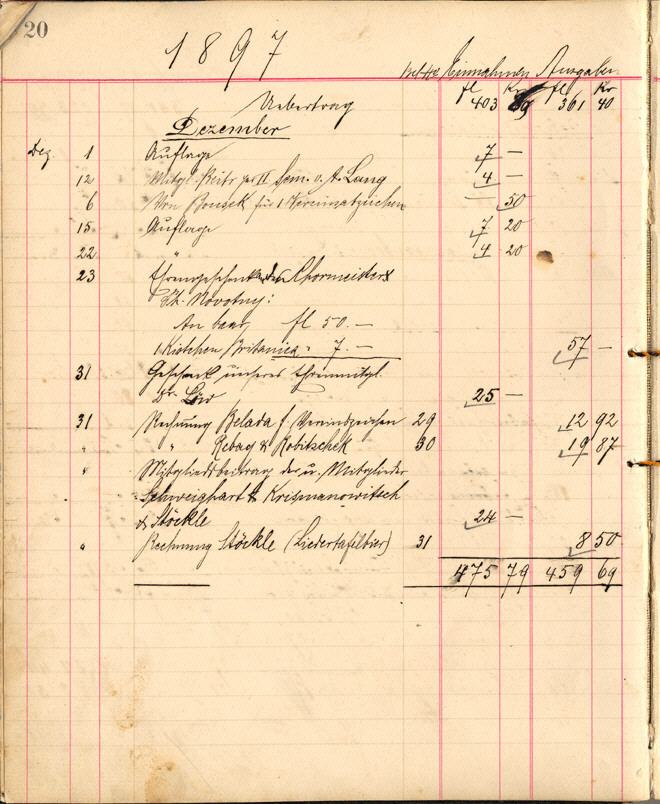 20
1897
Einnahmen Ausgaben
fl Kr fl Kr
Uebertrag 403 89 361 40
Dezember
Dez. 1 Auflage 7 —
12 Mitgl. Beitr per II Sem. v. A. Lang 4 —
6 Von Bousek für 1 Vereinsabzeichen — 50
15 Auflage 7 20
22 " 4 20
23 Ehrengeschenk Chormeisters
Novotny:
An baar, fl 50. —
1 Kistchen Britanica " 7. — 57 —
31 Geschenk unseres Ehrenmitgl.
Dr. Löw 25 —
31 Rechnung Belada f. Vereinszeichen 29 12 92
" " Rebag & Robitschek 30 19 87
" Mitgliedsbeitrag der u. Mitglieder
Schweighart & Krismanowitsch
& Stöckle 24 —
" Rechnung Stöckle (Liedertafelbier) 31 8 50
475 79 459 69